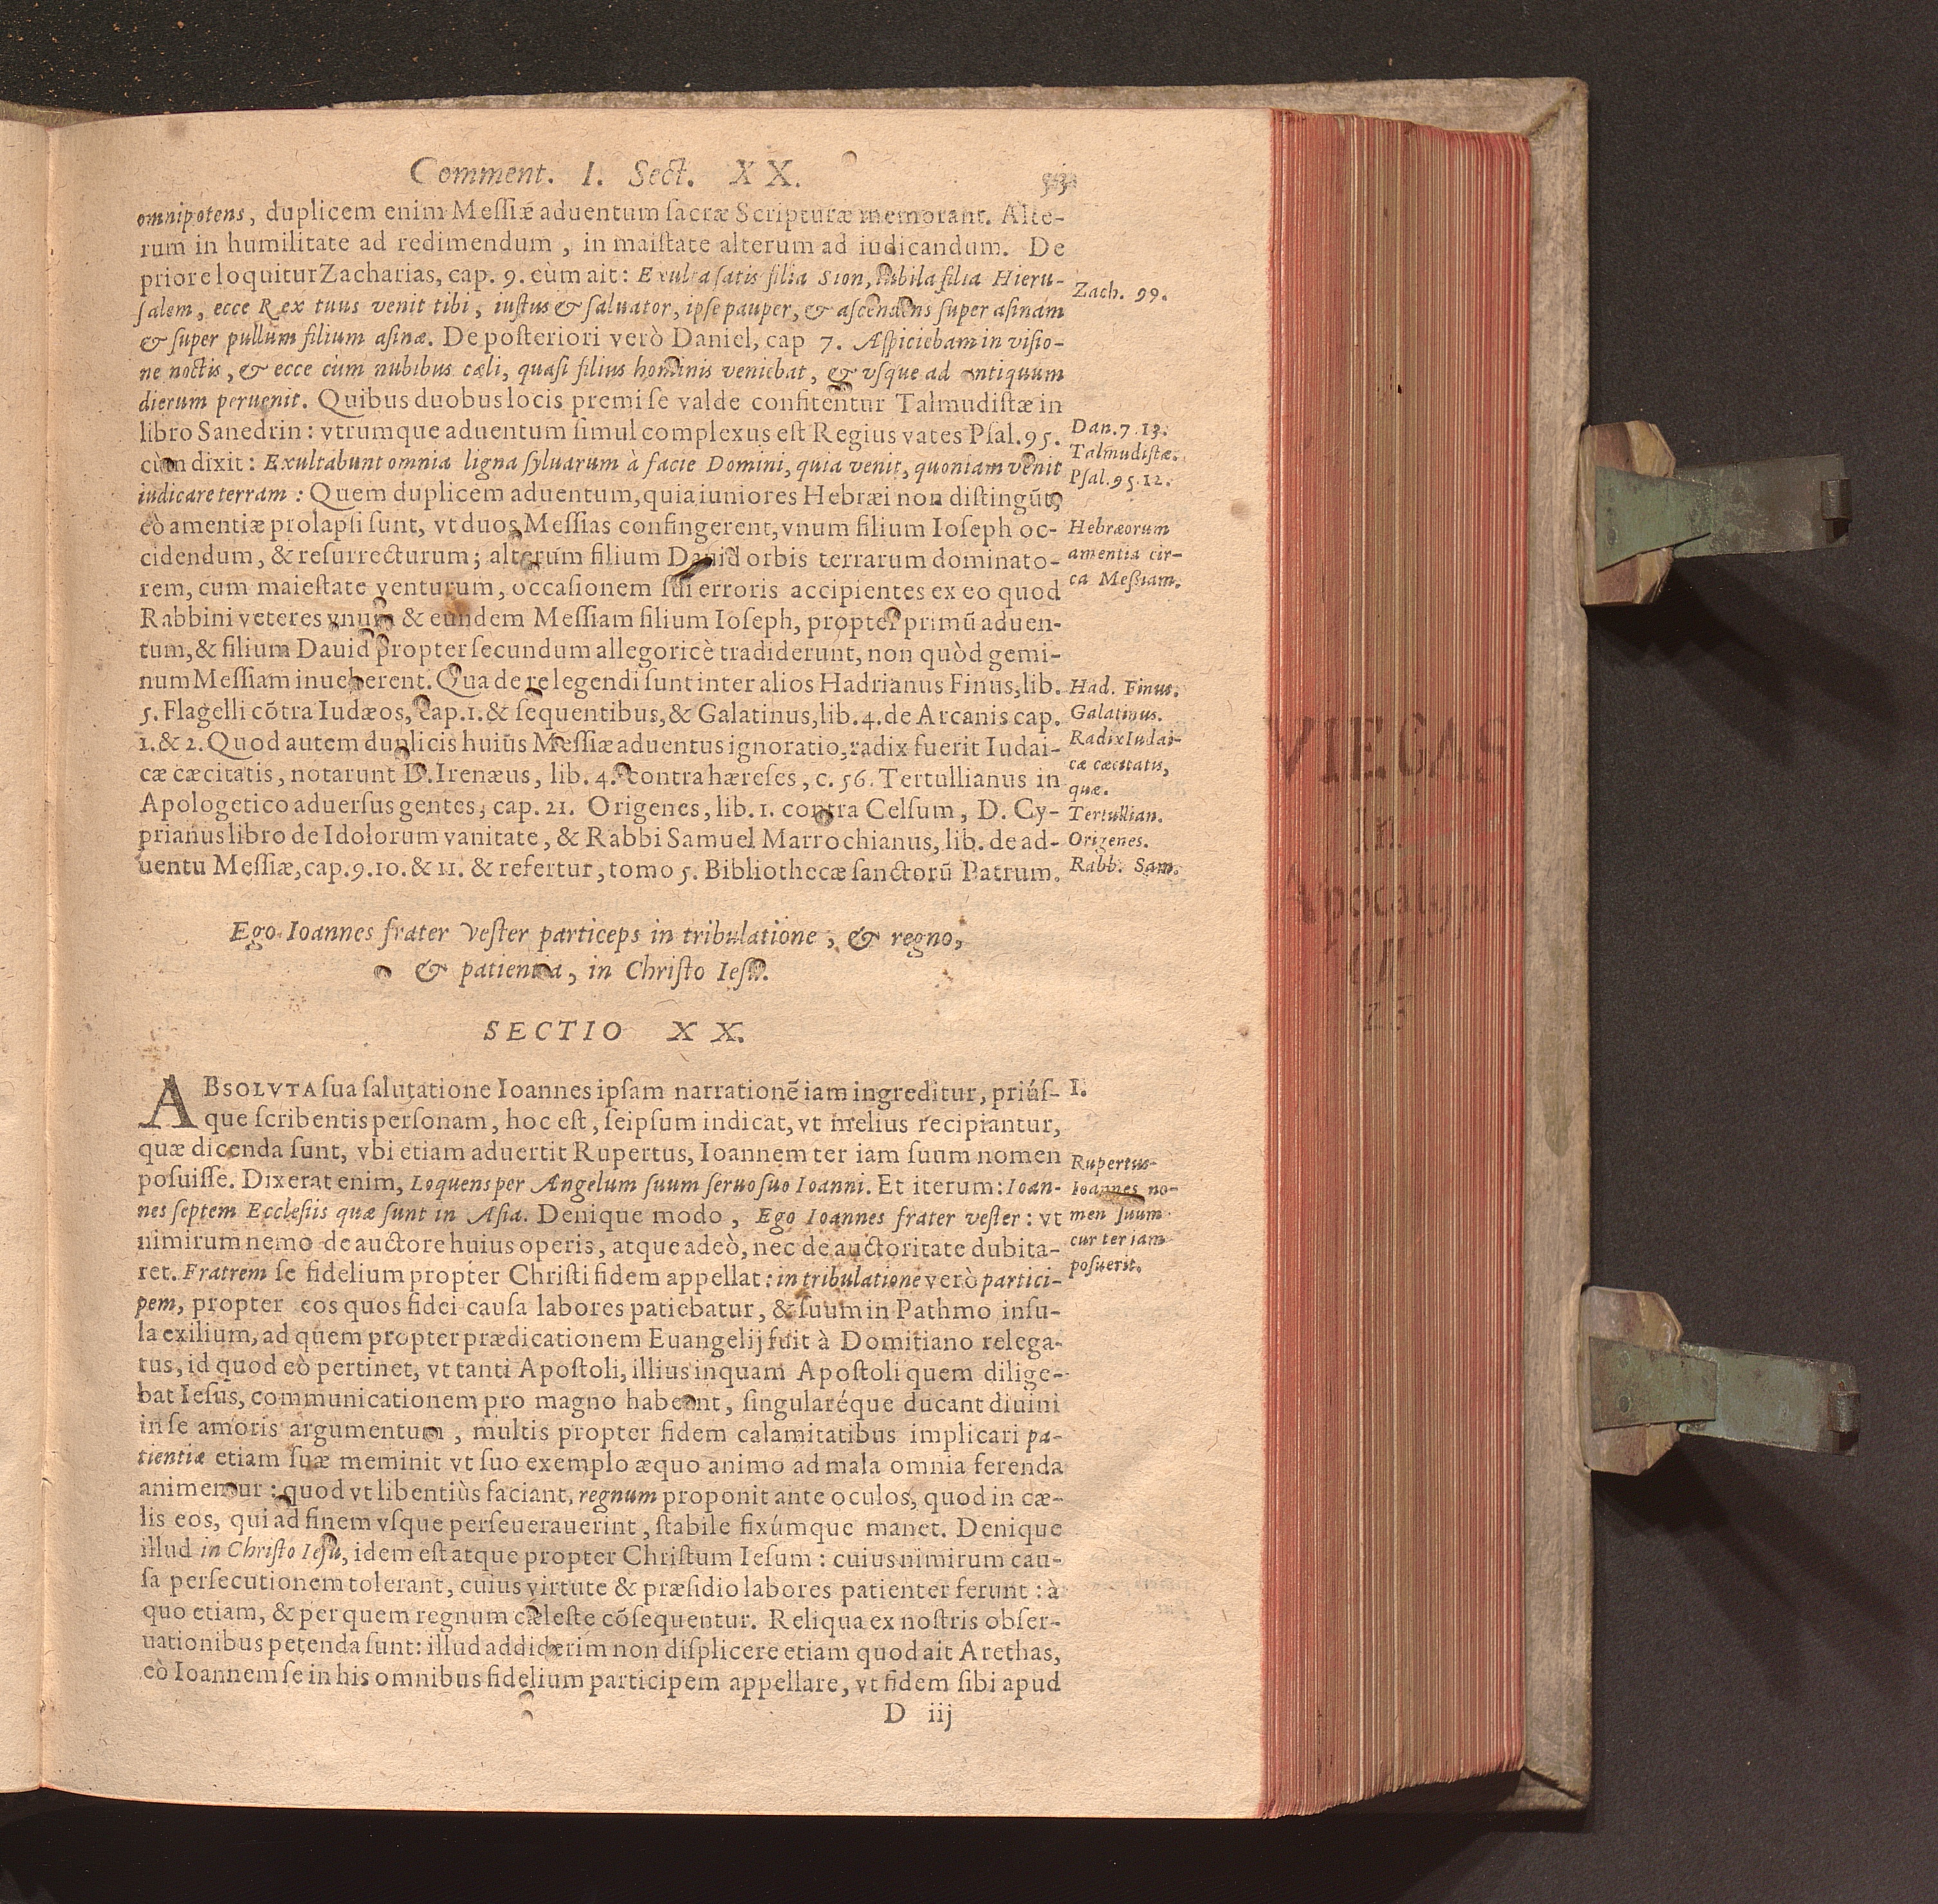 Comment. I. Sect. XX.
omnipotens, duplicem enim Meſſiæ aduentum ſacræ Scripturæ memorant. Alte-
rum in humilitate ad redimendum, in maiſtate alterum ad iudicandum. De
priore loquitur Zacharias, cap. 9. cùm ait: Exulta ſatis filia Sion, iubila filia Hieru-
ſalem, ecce Rex tuus venit tibi, iuſtus & ſaluator, ipſe pauper, & aſcendens ſuper aſinam
Zach. 99.
& ſuper pullum filium aſinæ. De poſteriori verò Daniel, cap 7. Aſpiciebam in viſio-
ne noctis, & ecce cùm nubibus cæli, quaſi filius hominis veniebat, & vſque ad antiquum
dierum peruenit. Quibus duobus locis premi ſe valde confitentur Talmudiſtæ in
libro Sanedrin: vtrumque aduentum ſimul complexus eſt Regius vates Pſal. 95.
Dan. 7. 13.
cùm dixit: Exultabunt omnia ligna ſyluarum à facie Domini, quia venit, quoniam venit
Talmudiſtæ.
iudicare terram: Quem duplicem aduentum, quia iuniores Hebræi non diſtingūt,
Pſal. 95. 12.
eò amentiæ prolapſi ſunt, vt duos Meſſias confingerent, vnum filium Ioſeph oc-
Hebræorum
cidendum, & reſurrecturum; alterum filium Dauid orbis terrarum dominato-
amentia cir-
rem, cum maieſtate venturum, occaſionem ſui erroris accipientes ex eo quod
ca Meßiam.
Rabbini veteres vnum & eundem Meſſiam filium Ioſeph, propter primū aduen-
tum, & filium Dauid propter ſecundum allegoricè tradiderunt, non quòd gemi-
num Meſſiam inueherent. Qua de re legendi ſunt inter alios Hadrianus Finus, lib.
Had. Finus.
5. Flagelli cōtra Iudæos, cap. 1. & ſequentibus, & Galatinus, lib. 4. de Arcanis cap.
Galatinus.
1. & 2. Quod autem duplicis huius Meſſiæ aduentus ignoratio, radix fuerit Iudai-
Radix Iudai-
cæ cæcitatis, notarunt D. Irenæus, lib. 4. contra hæreſes, c. 56. Tertullianus in
cæ cæcitatis,
quæ.
Apologetico aduerſus gentes, cap. 21. Origenes, lib. 1. contra Celſum, D. Cy-
Tertullian.
prianus libro de Idolorum vanitate, & Rabbi Samuel Marrochianus, lib. de ad-
Origenes.
uentu Meſſiæ, cap. 9. 10. & 11. & refertur, tomo 5. Bibliothecæ ſanctorū Patrum.
Rabb. Sam.
Ego Ioannes frater veſter particeps in tribulatione, & regno,
& patientia, in Chriſto Ieſu.
SECTIO XX.
ABSOLVTA ſua ſalutatione Ioannes ipſam narrationē iam ingreditur, priúſ-
I.
que ſcribentis perſonam, hoc eſt, ſeipſum indicat, vt melius recipiantur,
quæ dicenda ſunt, vbi etiam aduertit Rupertus, Ioannem ter iam ſuum nomen
Rupertus
poſuiſſe. Dixerat enim, Loquens per Angelum ſuum ſeruo ſuo Ioanni. Et iterum: Ioan-
Ioannes no-
nes ſeptem Eccleſiis quæ ſunt in Aſia. Denique modo, Ego Ioannes frater veſter: vt
men ſuum
nimirum nemo de auctore huius operis, atque adeò, nec de auctoritate dubita-
cur ter iam
ret. Fratrem ſe fidelium propter Chriſti fidem appellat: in tribulatione verò partici-
poſuerit.
pem, propter eos quos fidei cauſa labores patiebatur, & ſuum in Pathmo inſu-
la exilium, ad quem propter prædicationem Euangelij fuit à Domitiano relega-
tus, id quod eò pertinet, vt tanti Apoſtoli, illius inquam Apoſtoli quem dilige-
bat Ieſus, communicationem pro magno habeant, ſingularéque ducant diuini
in ſe amoris argumentum, multis propter fidem calamitatibus implicari pa-
tientiæ etiam ſuæ meminit vt ſuo exemplo æquo animo ad mala omnia ferenda
animemur: quod vt libentiùs faciant, regnum proponit ante oculos, quod in cæ-
lis eos, qui ad finem vſque perſeuerauerint, ſtabile fixúmque manet. Denique
illud in Chriſto Ieſu, idem eſt atque propter Chriſtum Ieſum: cuius nimirum cau-
ſa perſecutionem tolerant, cuius virtute & præſidio labores patienter ferunt: à
quo etiam, & per quem regnum cæleſte cōſequentur. Reliqua ex noſtris obſer-
uationibus petenda ſunt: illud addiderim non diſplicere etiam quod ait Arethas,
eò Ioannem ſe in his omnibus fidelium participem appellare, vt fidem ſibi apud
D iij
VIEGAS
In
Apocalypſ